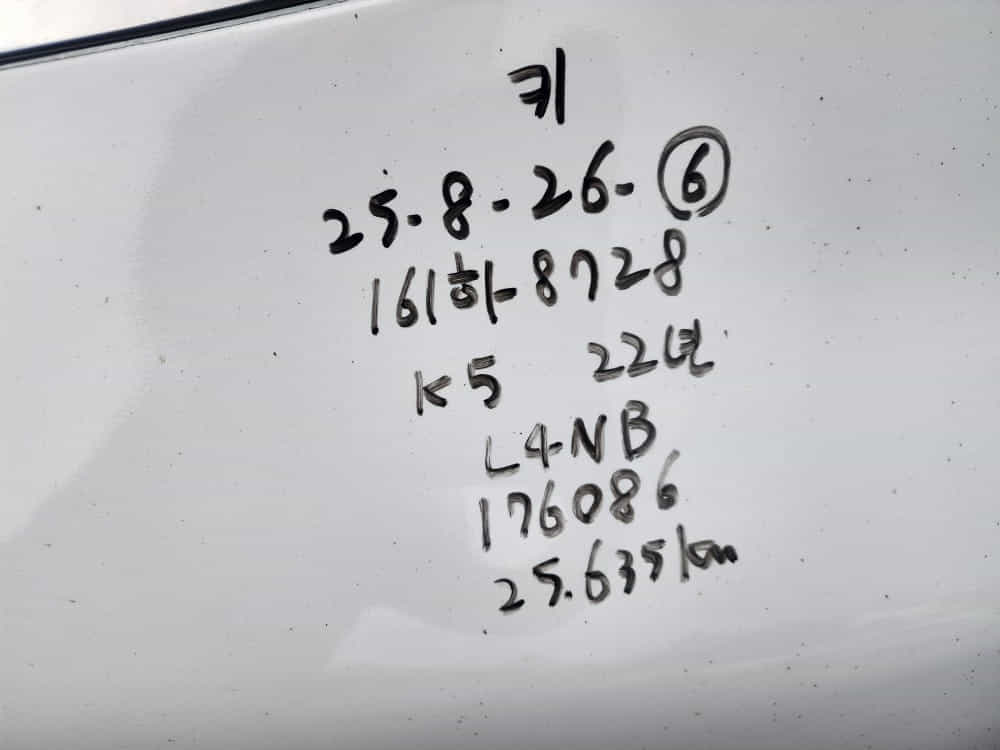 키
25-8-26-⑥
161하-8728
K5 22년
L4NB
176086
25.635km